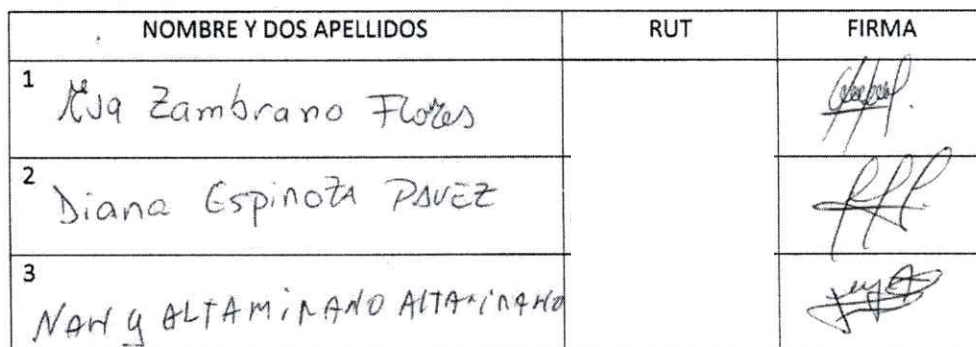 NOMBRE Y DOS APELLIDOS RUT FIRMA
1 Eva Zambrano Flores
2 Diana Espinoza PAVEZ
3 NANCY ALTAMIRANO ALTAMIRANO